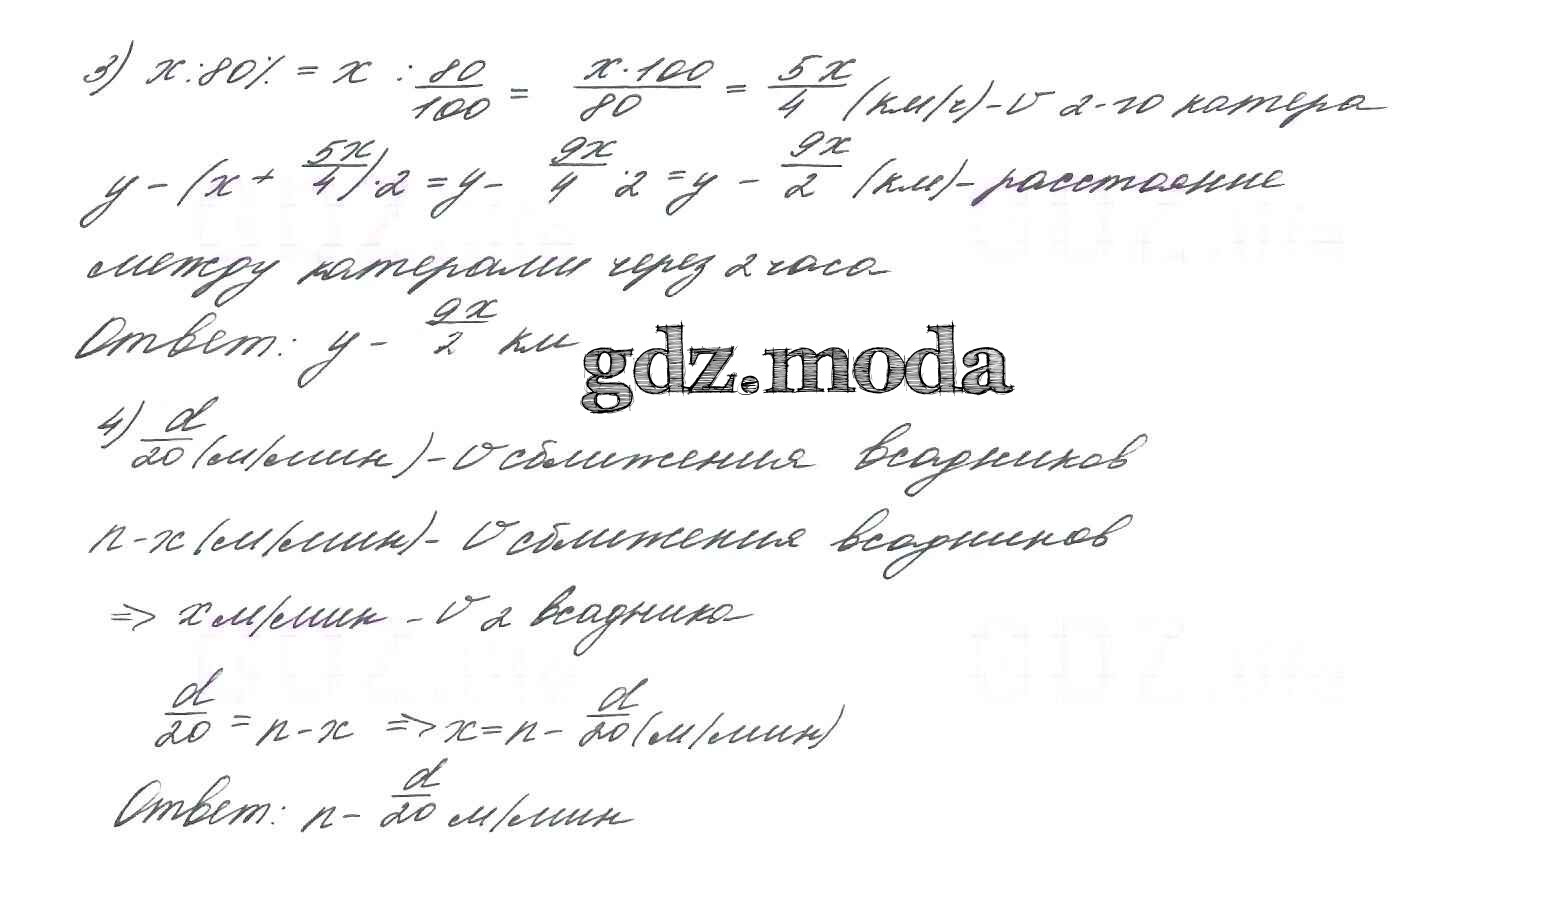 3) x : 80% = x : 80/100 = x·100/80 = 5x/4 (км/ч) - v 2-го катера
y - (x + 5x/4)·2 = y - 9x/4 · 2 = y - 9x/2 (км) - расстояние
между катерами через 2 часа
Ответ: y - 9x/2 км
gdz.moda
4) d/20 (м/мин) - v сближения всадников
n - x (м/мин) - v сближения всадников
=> x м/мин - v 2 всадника
d/20 = n - x => x = n - d/20 (м/мин)
Ответ: n - d/20 м/мин